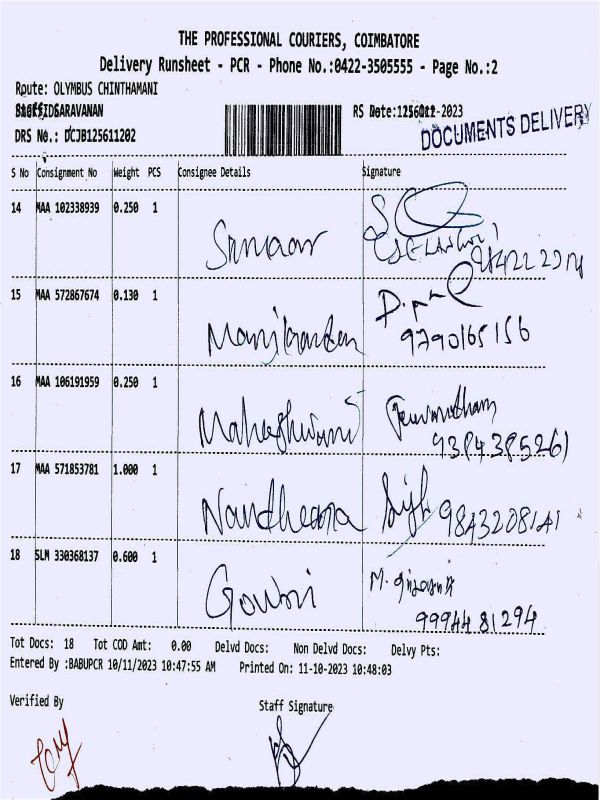 THE PROFESSIONAL COURIERS, COIMBATORE
Delivery Runsheet - PCR - Phone No.:0422-3505555 - Page No.:2
Route: OLYMBUS CHINTHAMANI
SARAVANAN
RS Date: -2023
DOCUMENTS DELIVERY
DRS No.: DCJB125611202
S No Consignment No Weight PCS Consignee Details Signature
14 MAA 102338939 0.250 1
15 MAA 572867674 0.130 1 Manikandan
9790165156
16 MAA 106191959 0.250 1 Maheshwari
9384385261
17 MAA 571853781 1.000 1 Nandheana
9843208141
18 SLM 330368137 0.600 1 Gowri M.
9994481294
Tot Docs: 18 Tot COD Amt: 0.00 Delvd Docs: Non Delvd Docs: Delvy Pts:
Entered By :BABUPCR 10/11/2023 10:47:55 AM Printed On: 11-10-2023 10:48:03
Verified By Staff Signature